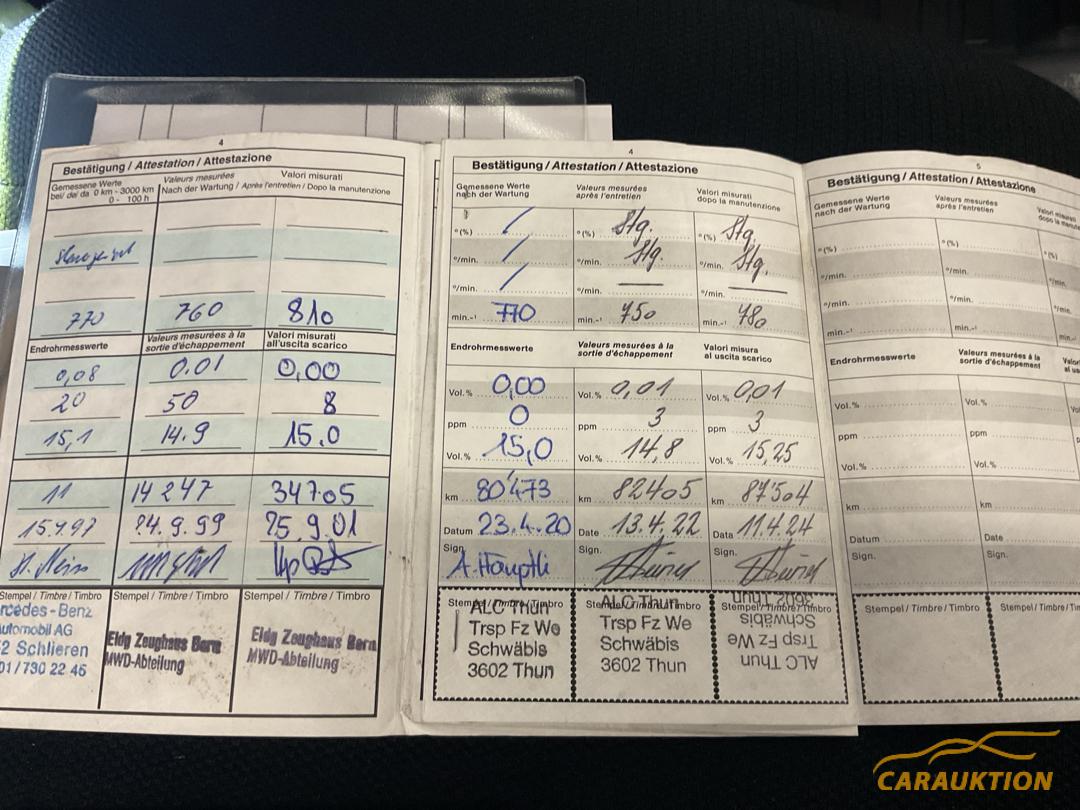 4
Bestätigung / Attestation / Attestazione
Gemessene Werte
bei/ de/ da 0 km - 3000 km
0 - 100 h
Valeurs mesurées
Valori misurati
Nach der Wartung / Après l'entretien / Dopo la manutenzione
770 760 810
Endrohrmesswerte
Valeurs mesurées à la
sortie d'échappement
Valori misurati
all'uscita scarico
0,08 0.01 0,00
20 50 8
15,1 14.9 15.0
11 14 247 34705
24.9.99 25.9.01
Stempel / Timbre / Timbro
Stempel / Timbre / Timbro
Stempel / Timbre / Timbro
rcedes-Benz
utomobil AG
2 Schlieren
01/730 22 46
Eidg Zeughaus Bern
MWD-Abteilung
Eidg Zeughaus Bern
MWD-Abteilung
4
Bestätigung / Attestation / Attestazione
Gemessene Werte
nach der Wartung
Valeurs mesurées
après l'entretien
Valori misurati
dopo la manutenzione
°(%) / °(%) Stg. °(%) Stg.
°/min. / Stg. °/min. Stg.
°/min. / °/min. — °/min. —
min.-¹ 770 min.-¹ 750 min.-¹ 780
Endrohrmesswerte
Valeurs mesurées à la
sortie d'échappement
Valori misura
al uscita scarico
Vol.% 0,00 Vol.% 0,01 Vol.% 0,01
ppm 0 ppm 3 ppm 3
Vol.% 15,0 Vol.% 14,8 Vol.% 15,25
km 80'473 km 82405 km 87504
Datum 23.4.20 Date 13.4.22 Data 11.4.24
Sign. Sign. Sign.
A. Häuptli
Stempel / Timbre / Timbro
Stempel / Timbre / Timbro
Stempel / Timbre / Timbro
ALC Thun
Trsp Fz We
Schwäbis
3602 Thun
ALC Thun
Trsp Fz We
Schwäbis
3602 Thun
ALC Thun
Trsp Fz We
Schwäbis
3602 Thun
5
Bestätigung / Attestation / Attestazione
Gemessene Werte
nach der Wartung
Valeurs mesurées
après l'entretien
Valori misurati
dopo la manute
°(%) °(%) °(%)
°/min. °/min. °/min.
°/min. °/min. °/min.
min.-¹ min.-¹ min.-¹
Endrohrmesswerte
Valeurs mesurées à la
sortie d'échappement
Valori
al us
Vol.% Vol.% Vol.%
ppm ppm
Vol.% Vol.%
km km
Datum Date
Sign. Sign.
Stempel / Timbre / Timbro
Stempel / Timbre / Timbro
CARAUKTION